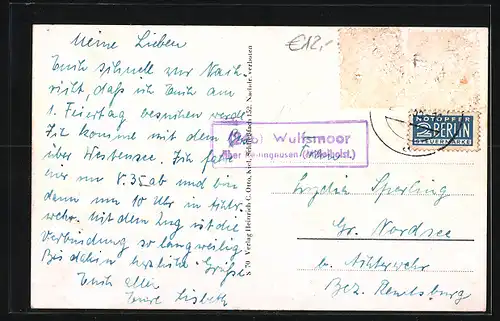 Meine Lieben
€12,-
Euch schnell zur Nach
richt, daß ich Euch am
1. Feiertag besuchen werde
Ich komme mit dem
über Westensee. Ich fahre
hier um 8.35 ab und bin
dann um 10 Uhr in Achter
wehr. Mit dem Zug ist die
Verbindung so langweilig
Bis dahin herzliche Grüße
Euch allen
Eure Lisbeth
S 70 Verlag Heinrich C. Otto, Kiel, 152. Nachdr. verboten
Wulfsmoor
über (Mittelholst.)
NOTOPFER
2 BERLIN
STEUERMARKE
Lydia Sperling
Gr. Nordsee
b. Achterwehr
Bez. Rendsburg